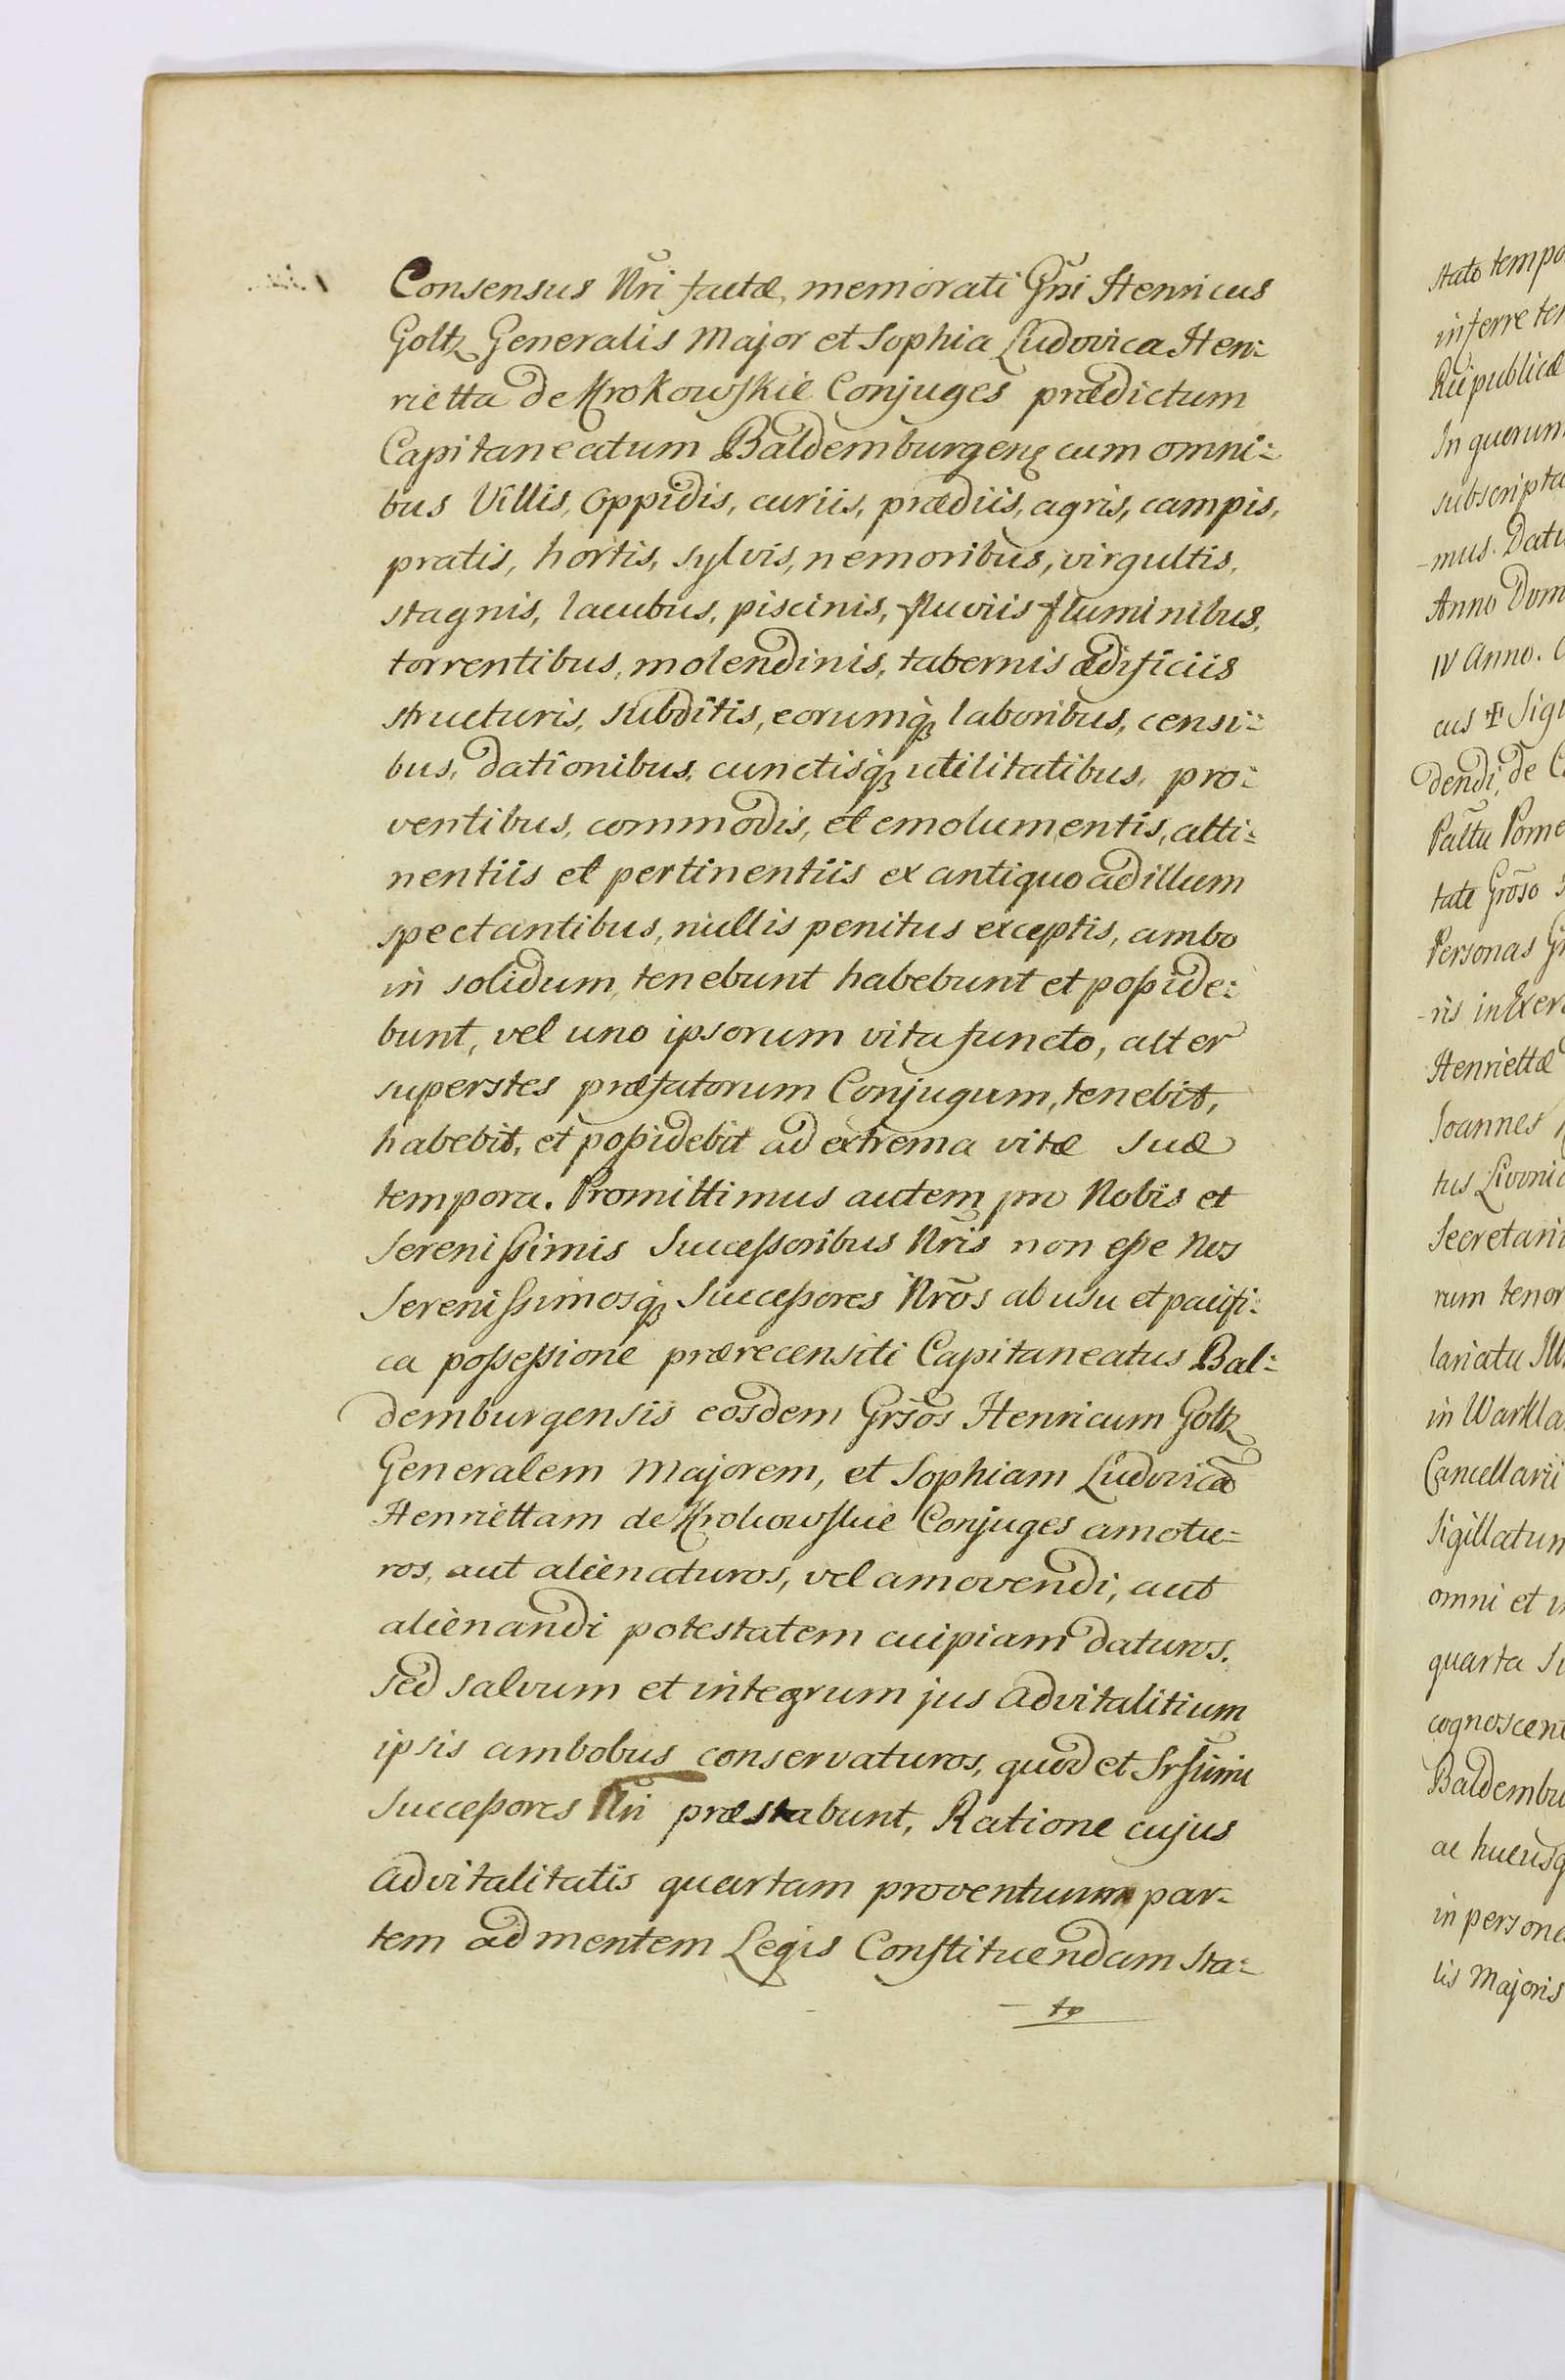 Consensus Nri factæ, memorati Gni Henricus
Goltz Generalis Major et Sophia Ludovica Hen:
rietta de Krokowskie Conjuges prædictum
Capitaneatum Baldemburgenę cum omni:
bus Villis, oppidis, curiis, prædiis, agris, campis,
pratis, hortis, sylvis, nemoribus, virgultis,
stagnis, lacubus, piscinis, fluviis fluminibus,
torrentibus, molendinis, tabernis ædificiis
structuris, subditis, eorumq3 laboribus, censi:
bus, dationibus, cunctisq3 utilitatibus, pro:
ventibus, commodis, et emolumentis, atti:
nentiis et pertinentiis ex antiquo ad illum
spectantibus, nullis penitus exceptis, ambo
in solidum, tenebunt habebunt et poßide:
bunt, vel uno ipsorum vita functo, alter
superstes præfatorum Conjugum, tenebit,
habebit, et poßidebit ad extrema vitæ suæ
tempora. Promittimus autem pro Nobis et
Serenißimis Succeßoribus Nris non eße Nos
Serenissimosq3 Succeßores Nros ab usu et pacifi:
ca poßeßione prærecensiti Capitaneatus Bal:
demburgensis eosdem Grsos Henricum Goltz
Generalem Majorem, et Sophiam Ludovicã
Henriettam de Krokowskie Conjuges amotu=
ros, aut alienaturos, vel amovendi, aut
alienandi potestatem cuipiam daturos.
sed salvum et integrum jus advitalitium
ipsis ambobus conservaturos, quod et Srssimi
Succeßores Nri præstabunt, Ratione cujus
advitalitatis quartam proventuum par=
tem ad mentem Legis Constituendam sta=
to
stato tempo
inferre ter
Reipublicæ
In quorum
subscripta
-mus. Datu
Anno Dom
IV Anno.
cus Sigi
dendi, de C
Pome
tate Groso
Personas
-ris in Exer
Henriettæ
Joannes
tus Livoni
Secretari
rum tenor
lariatu Ill
in Warkla
Cancellarii
Sigillatum
omni et i
quarta
cognoscent
Baldembu
ac hucusq
in persona
lis Majoris